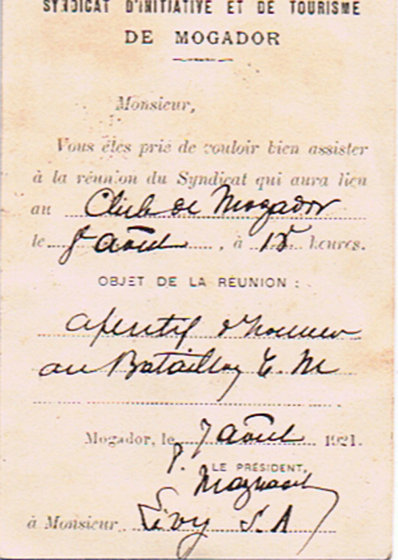 SYNDICAT D'INITIATIVE ET DE TOURISME
DE MOGADOR
Monsieur,
Vous êtes prié de vouloir bien assister
à la réunion du Syndicat qui aura lieu
au Club de Mogador
le 8 août, à 18 heures.
OBJET DE LA RÉUNION :
apéritif d'honneur
au Bataillon E. M
Mogador, le 7 août 1921.
P. LE PRÉSIDENT,
à Monsieur Lévy S. A